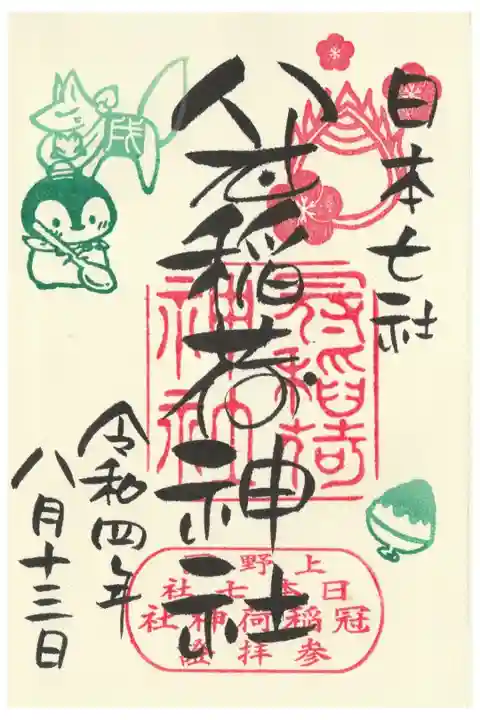 日本七社
冠稲荷神社
令和四年
八月十三日
冠稲荷
神社
上野
日本七社
冠稲荷神社
参拝證